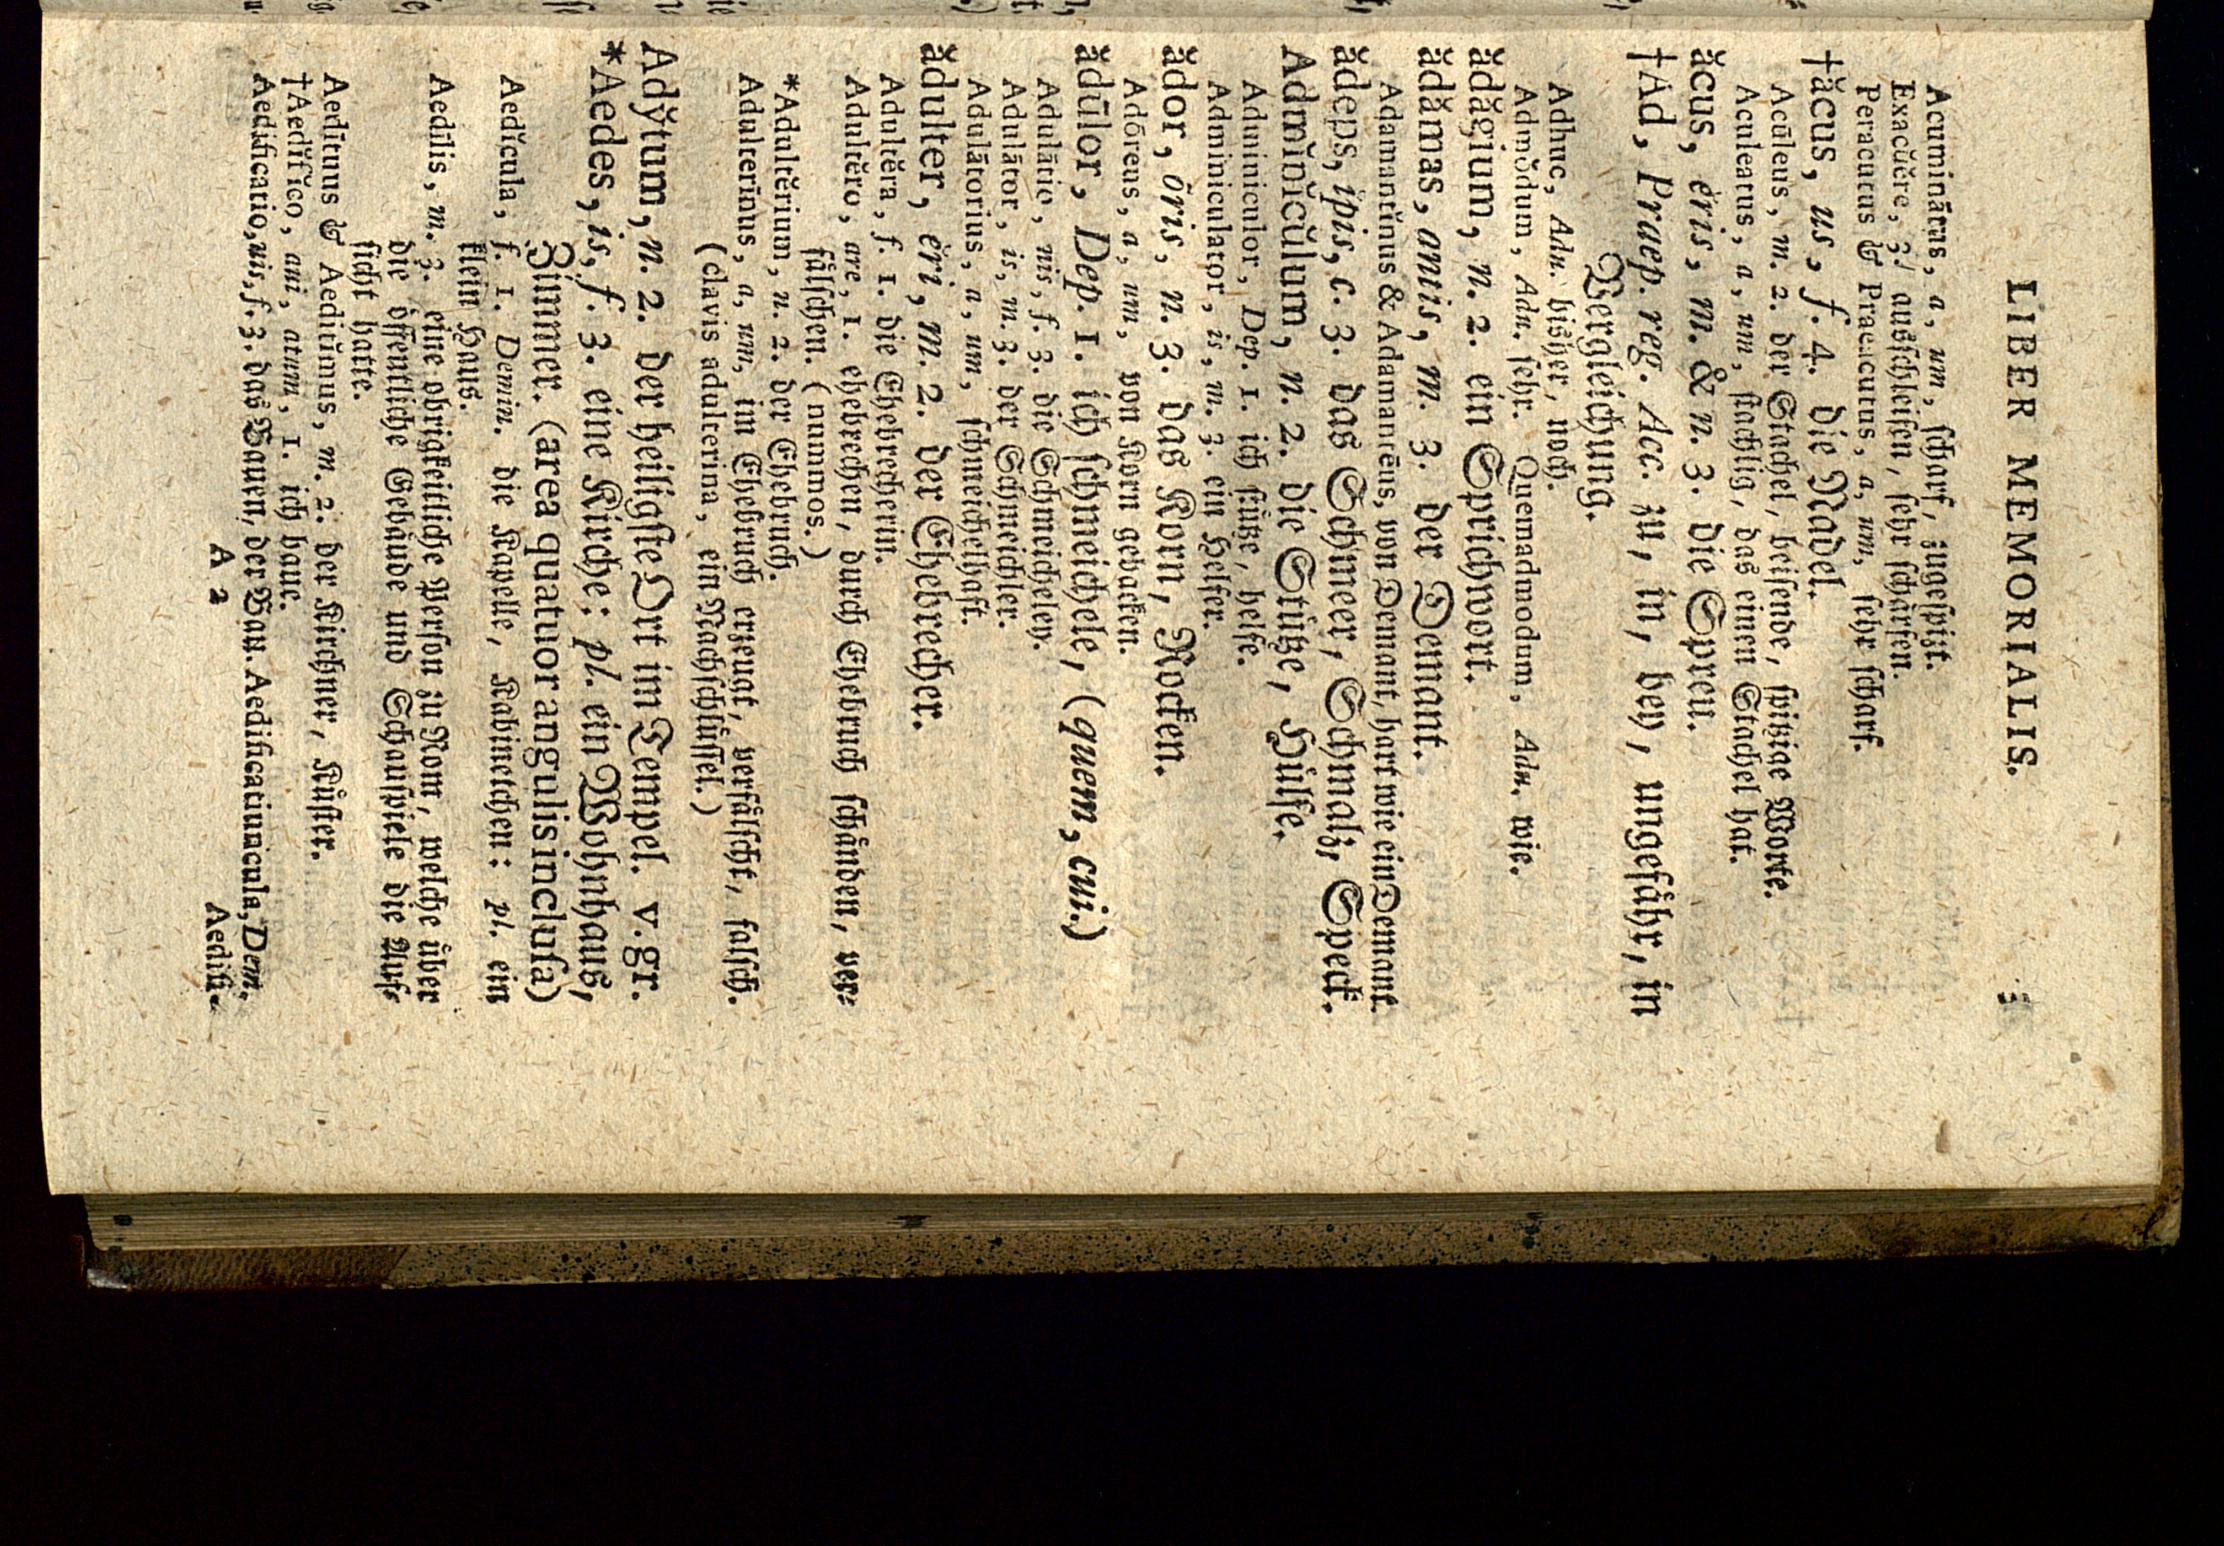 LIBER MEMORIALIS. 3
Acuminātus, a, um, ſcharf, zugeſpitzt.
Exacŭĕre, 3. ausſchleifen, ſehr ſchärfen.
Peracutus & Praeacutus, a, um, ſehr ſcharf.
†ăcus, us, f. 4. die Nadel.
Acūleus, m. 2. der Stachel, beiſende, ſpitzige Worte.
Aculeatus, a, um, ſtachlig, das einen Stachel hat.
ăcus, ĕris, m. & n. 3. die Spreu.
†Ad, Praep. reg. Acc. zu, in, bey, ungefähr, in
Vergleichung.
Adhuc, Adv. bisher, noch.
Admŏdum, Adv. ſehr. Quemadmodum, Adv. wie.
ădăgium, n. 2. ein Sprichwort.
ădămas, antis, m. 3. der Demant.
Adamantĭnus & Adamantēus, von Demant, hart wie ein Demant.
ădeps, ĭpis, c. 3. das Schmeer, Schmalz, Speck.
Admĭnĭcŭlum, n. 2. die Stütze, Hülfe.
Adminiculor, Dep. 1. ich ſtütze, helfe.
Adminiculator, is, m. 3. ein Helfer.
ădor, ŏris, n. 3. das Korn, Rocken.
Adōreus, a, um, von Korn gebacken.
ădūlor, Dep. 1. ich ſchmeichele, (quem, cui.)
Adulātio, nis, f. 3. die Schmeicheley.
Adulātor, is, m. 3. der Schmeichler.
Adulātorius, a, um, ſchmeichelhaft.
ădulter, ĕri, m. 2. der Ehebrecher.
Adultĕra, f. 1. die Ehebrecherin.
Adultĕro, are, 1. ehebrechen, durch Ehebruch ſchänden, ver-
fälſchen. (nummos.)
*Adultĕrium, n. 2. der Ehebruch.
Adulterīnus, a, um, im Ehebruch erzeugt, verfälſcht, falſch.
(clavis adulterina, ein Nachſchlüſſel.)
Adўtum, n. 2. der heiligſte Ort im Tempel. v. gr.
*Aedes, is, f. 3. eine Kirche; pl. ein Wohnhaus,
Zimmer. (area quatuor angulis incluſa)
Aedĭcula, f. 1. Demin. die Kapelle, Kabinetchen: pl. ein
klein Haus.
Aedīlis, m. 3. eine obrigkeitliche Perſon zu Rom, welche über
die öffentliche Gebäude und Schauſpiele die Auf-
ſicht hatte.
Aedītuus & Aeditŭmus, m. 2. der Kirchner, Küſter.
†Aedĭfĭco, avi, atum, 1. ich baue.
Aedificatio, nis, f. 3. das Bauen, der Bau. Aedificatiuncula, Dem.
A 2 Aedifi-